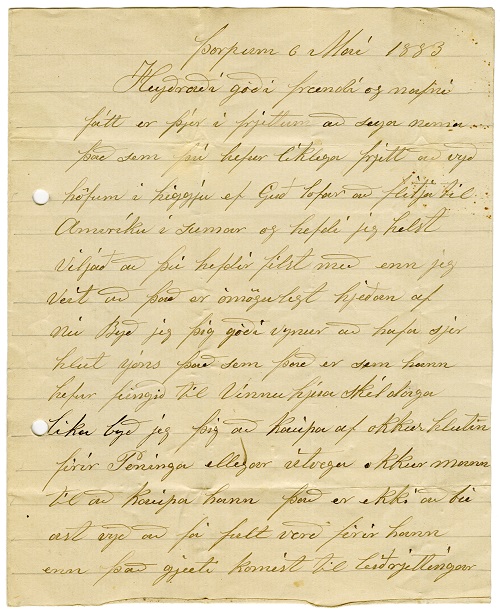 Þorpum 6 Maí 1883
Heyðraði góði frændi og nafni
fátt er þjer í frjettum að seiga nema
það sem þú hefur líklega frjett að vyð
höfum í higgju ef Guð lofar að flitja til
Ameríku í sumar og hefdi jeg helst
viljað að þú hefdir filst með enn jeg
veit að það er ómögulegt hjeðan af
nú Byð jeg þig góði vynur að hafa sjer
hlut Jóns það sem það er sem hann
hefur feingið til Vinnu hjera
líka byð jeg þig að kaupa af okkur hlutin
firir Peninga ellegar útvega okkur mann
til að kaupa hann það er ekki að bú
ast vyð að fá fult verd firir hann
enn það gjæti komist til leiðrjettingar